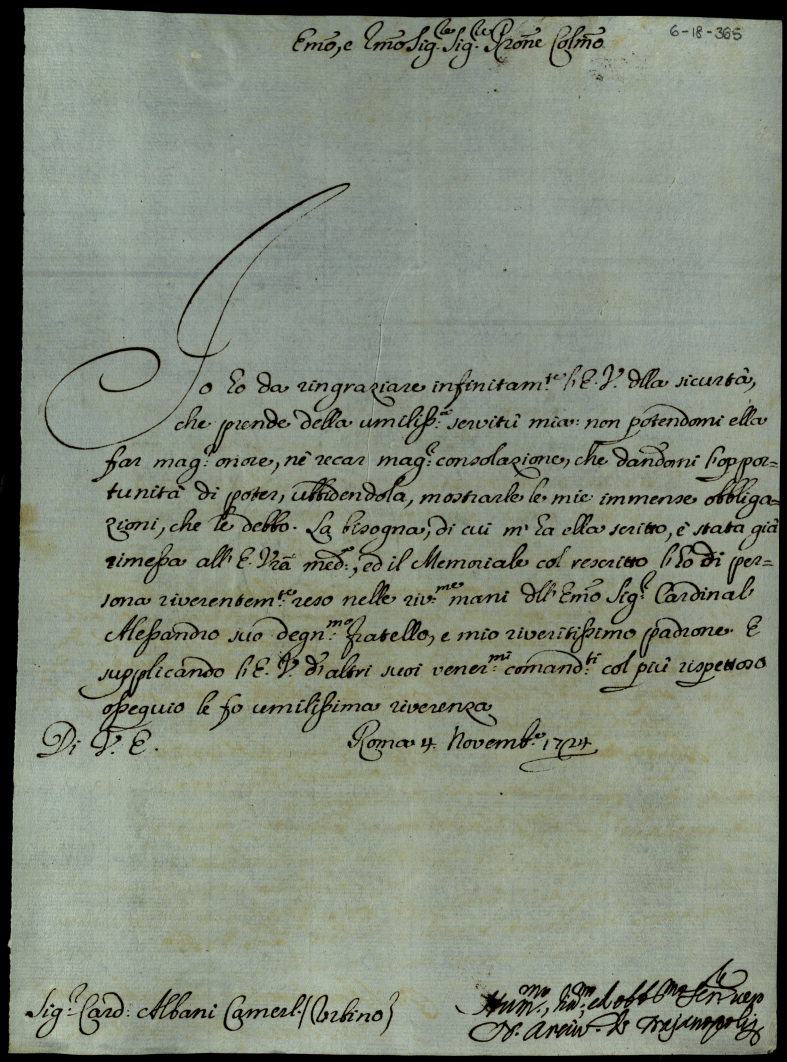 Emo, e Rmo Sig.re Sig.re Prone Colmo
6-18-365
Io ho da ringraziare infinitam.te l'E. V. della sicurtà,
che prende della umiliss.a servitù mia: non potendomi ella
far mag.r onore, nè recar mag.r consolazione, che dandomi l'oppor=
tunità di poter, ubbidendola, mostrarle le mie immense obbliga=
zioni, che le debbo. La bisogna, di cui m'ha ella scritto, è stata già
rimessa all'E. Vra med.a, ed il Memoriale col rescritto l'ho di per=
sona riverentem.te reso nelle riv.me mani dell'Emo Sig.r Cardinal
Alessandro suo degn.mo fratello, e mio riveritissimo padrone. E
supplicando l'E. V. d'altri suoi vener.mi comand.ti col più rispettoso
ossequio le fo umilissima riverenza
Di V. E. Roma 4. Novemb.e 1724.
Sig.r Card: Albani Camerl. (Urbino)
Hum.mo, ed obb.mo
N. Arciv.o di Trajanopoli